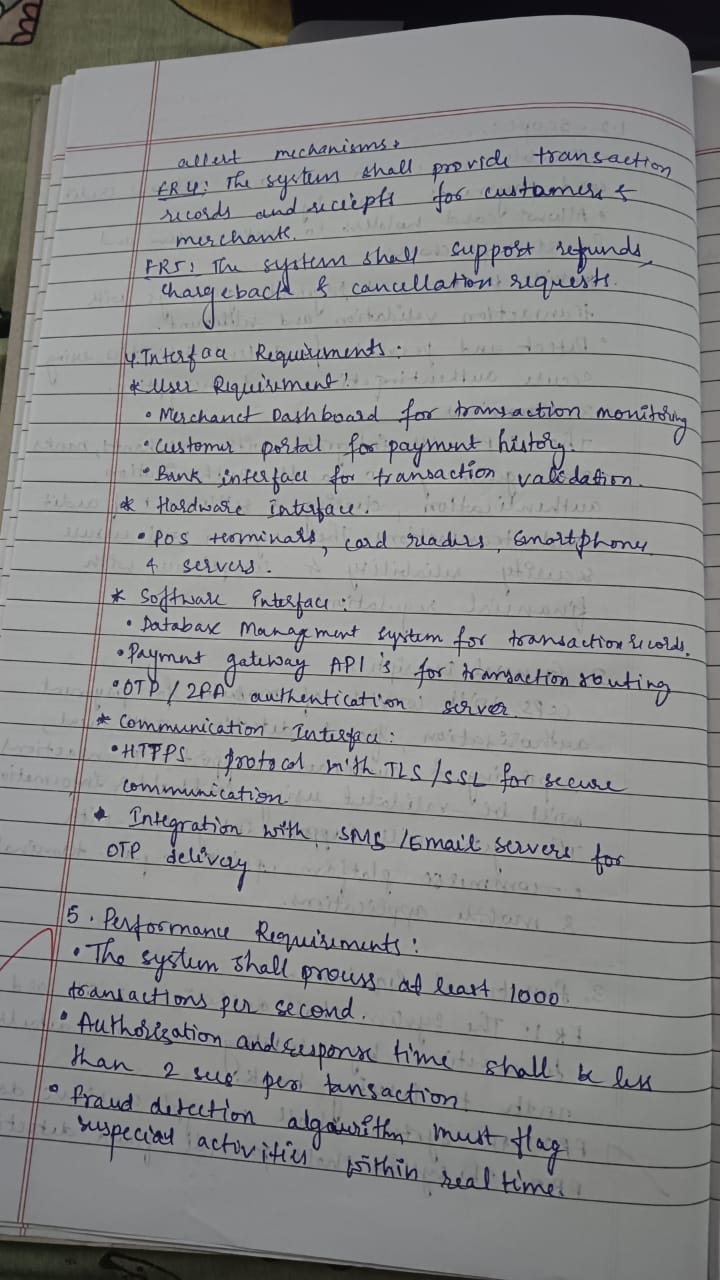 allert mechanisms.
FR4: The system shall provide transaction
records and reciepts for customers &
merchants.
FR5: The system shall support refunds,
chargeback & cancellation requests.
4. Interface Requirements:
* User Requirement:
• Merchanct Dashboard for transaction monitoring
• Customer portal for payment history.
• Bank interface for transaction validation.
* Hardware interface.
• POS terminals, card readers, smartphones
& servers.
* Software Interface:
• Database Management system for transaction records.
• Payment gateway API's for transaction routing
• OTP / 2FA authentication server.
* Communication Interface:
• HTTPS protocol with TLS/SSL for secure
communication
* Integration with SMS /Email servers for
OTP delivery
5. Performance Requirements:
• The system shall process at least 1000
transactions per second.
• Authorization and response time shall be less
than 2 secs per tansaction.
• Fraud detection algourithm must flag
suspecial activities within real time.